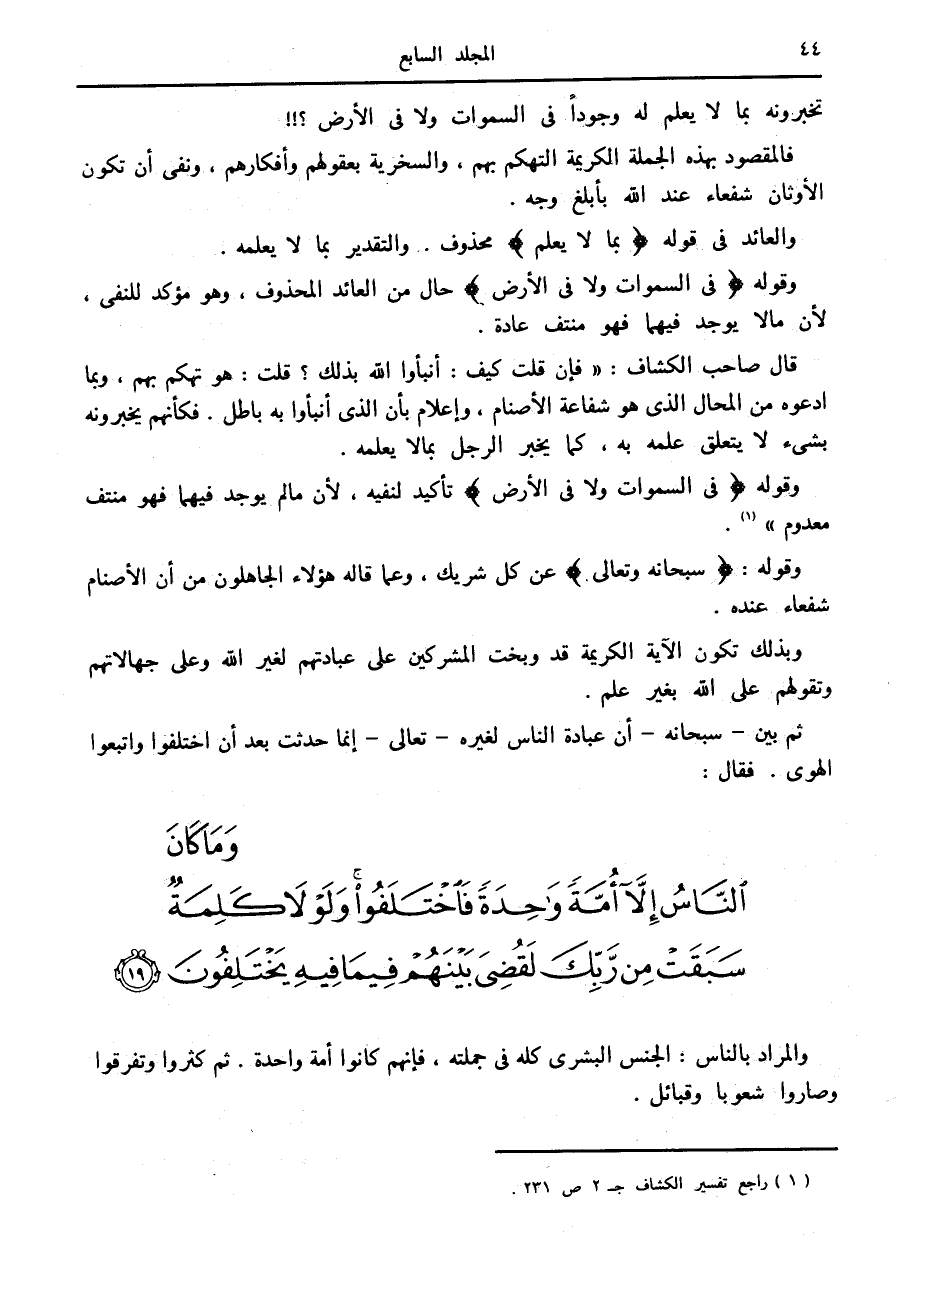 ٤٤
المجلد السابع
تخبرونه بما لا يعلم له وجوداً فى السموات ولا فى الأرض ؟!!
فالمقصود بهذه الجملة الكريمة التهكم بهم ، والسخرية بعقولهم وأفكارهم ، ونفى أن تكون
الأوثان شفعاء عند الله بأبلغ وجه .
والعائد فى قوله ﴿ بما لا يعلم ﴾ محذوف . والتقدير بما لا يعلمه .
وقوله ﴿ فى السموات ولا فى الأرض ﴾ حال من العائد المحذوف ، وهو مؤكد للنفى ،
لأن مالا يوجد فيهما فهو منتف عادة .
قال صاحب الكشاف : « فإن قلت كيف : أنبأوا الله بذلك ؟ قلت : هو تهكم بهم ، وبما
ادعوه من المحال الذى هو شفاعة الأصنام ، وإعلام بأن الذى أنبأوا به باطل . فكأنهم يخبرونه
بشىء لا يتعلق علمه به ، كما يخبر الرجل بمالا يعلمه .
وقوله ﴿ فى السموات ولا فى الأرض ﴾ تأكيد لنفيه ، لأن مالم يوجد فيهما فهو منتف
معدوم » (١) .
وقوله : ﴿ سبحانه وتعالى ﴾ عن كل شريك ، وعما قاله هؤلاء الجاهلون من أن الأصنام
شفعاء عنده .
وبذلك تكون الآية الكريمة قد وبخت المشركين على عبادتهم لغير الله وعلى جهالاتهم
وتقولهم على الله بغير علم .
ثم بين – سبحانه – أن عبادة الناس لغيره – تعالى – إنما حدثت بعد أن اختلفوا واتبعوا
الهوى . فقال :
وَمَا كَانَ
ٱلنَّاسُ إِلَّآ أُمَّةً وَٰحِدَةً فَٱخْتَلَفُوا۟ ۚ وَلَوْلَا كَلِمَةٌ
سَبَقَتْ مِن رَّبِّكَ لَقُضِىَ بَيْنَهُمْ فِيمَا فِيهِ يَخْتَلِفُونَ ١٩
والمراد بالناس : الجنس البشرى كله فى جملته ، فإنهم كانوا أمة واحدة . ثم كثروا وتفرقوا
وصاروا شعوبا وقبائل .
( ١ ) راجع تفسير الكشاف جـ ٢ ص ٢٣١ .